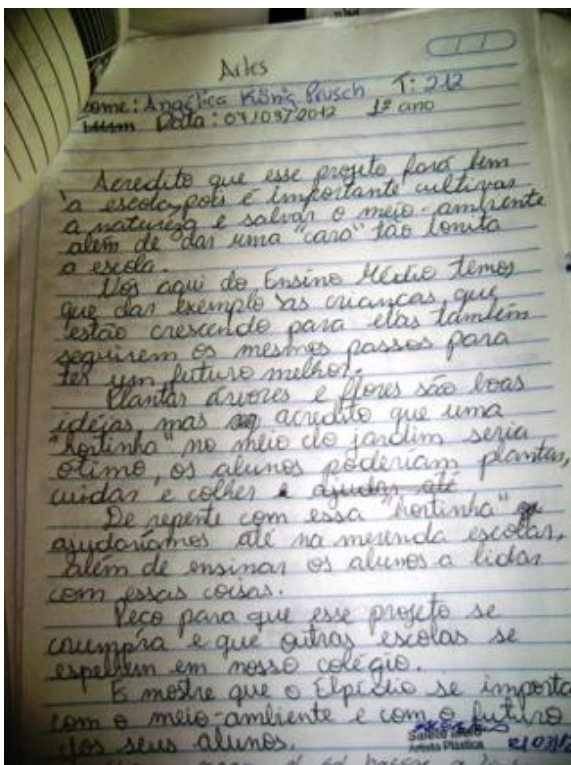 Artes
Nome: Angélica König Prusch T: 212
Data: 07/03/2012 1º ano
Acredito que esse projeto fará bem
à escola, pois é importante cultivar
a natureza e salvar o meio-ambiente
além de dar uma "cara" tão bonita
a escola.
Nós aqui do Ensino Médio temos
que dar exemplo às crianças que
estão crescendo para elas também
seguirem os mesmos passos para
ter um futuro melhor.
Plantar árvores e flores são boas
idéias, mas acredito que uma
"hortinha" no meio do jardim seria
ótimo, os alunos poderiam plantar,
cuidar e colher ajudar até
De repente com essa "hortinha"
ajudaríamos até na merenda escolar,
além de ensinar os alunos a lidar
com essas coisas.
Peço para que esse projeto se
cumpra e que outras escolas se
espelhem em nosso colégio.
E mostre que o Elpídio se importa
com o meio-ambiente e com o futuro
dos seus alunos.
Artista Plástica